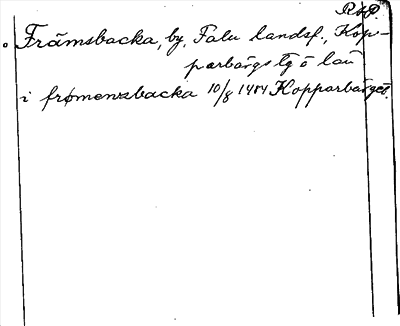 R.H.P.
Främsbacka, by, Falu landsf., Kop-
parbergs lg o län
i frømensbacka 10/8 1484 Kopparberget.